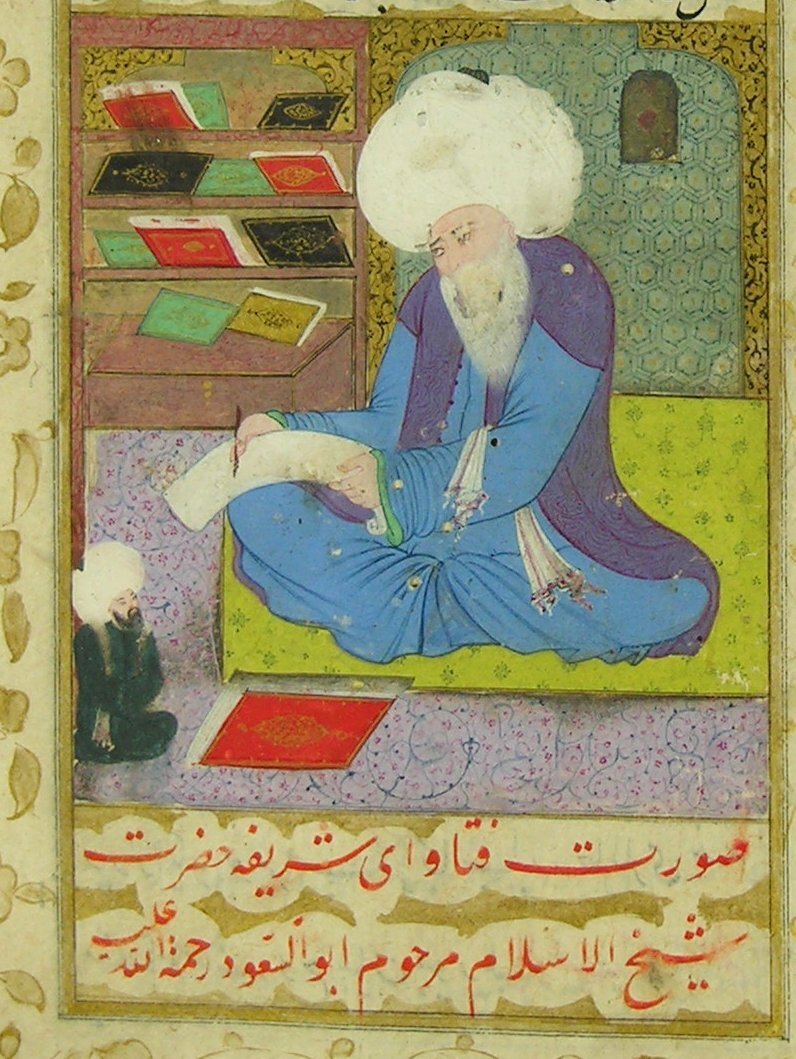 صورت فتاوای شریفه حضرت
شیخ الاسلام مرحوم ابو السعود رحمة الله علیه